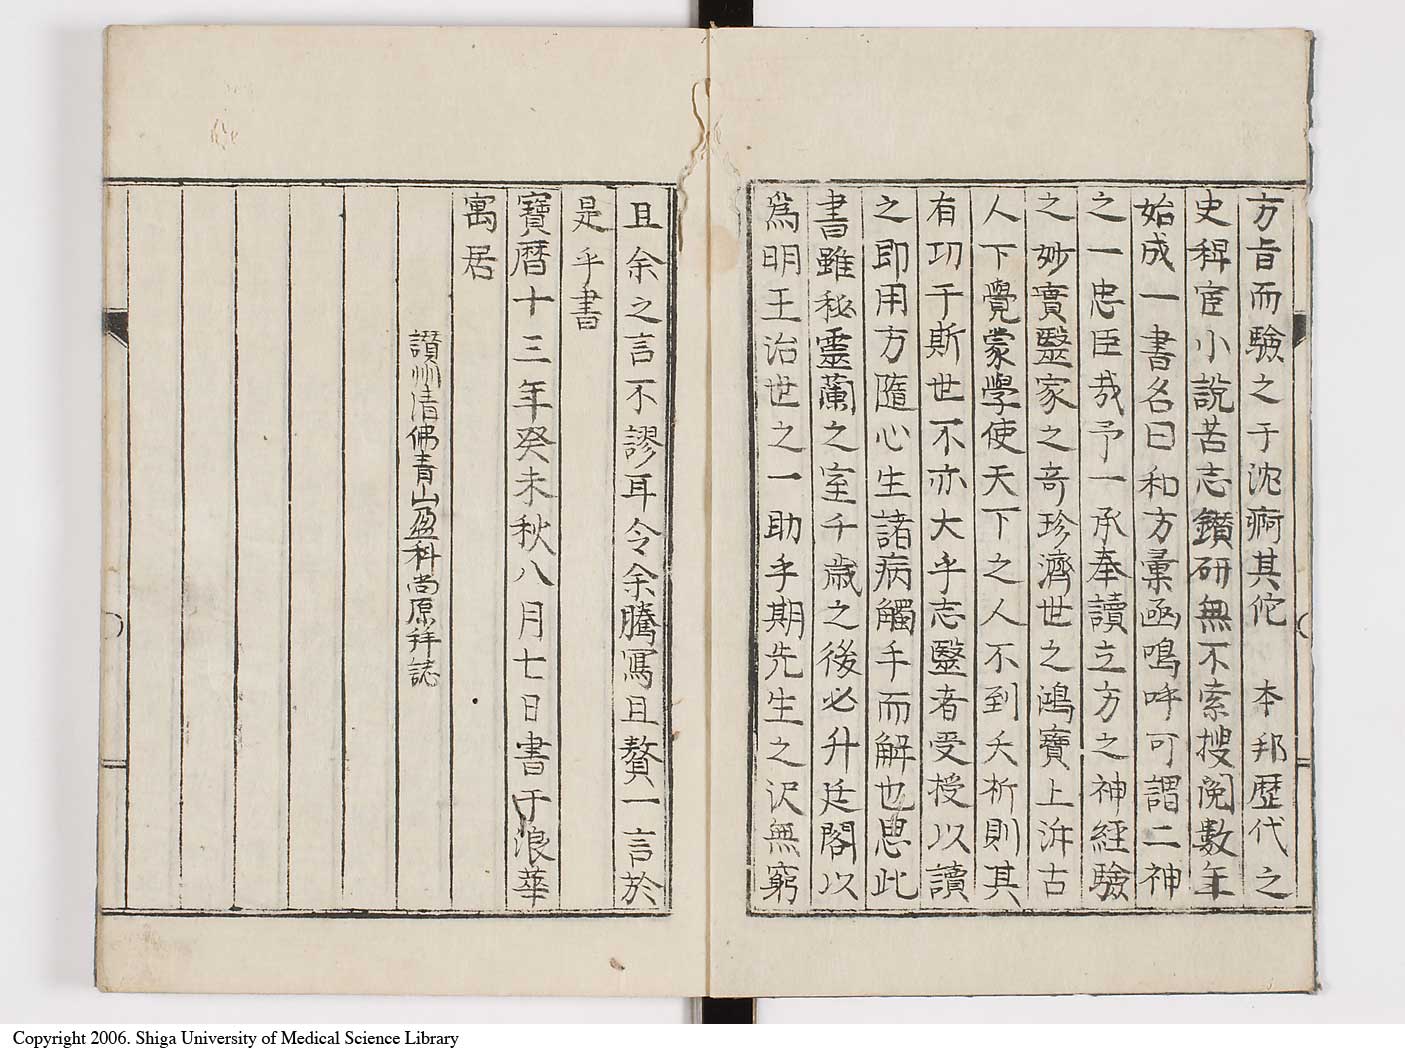 方旨而驗之于沈痾其佗　本邦歷代之
史稗官小說苦志鑽研無不索搜閱數年
始成一書名曰和方彙函嗚呼可謂二神
之一忠臣哉予一承奉讀立方之神經驗
之妙實毉家之奇珍濟世之鴻寶上泝古
人下覺蒙學使天下之人不到夭折則其
有功于斯世不亦大乎志毉者受授以讀
之即用方隨心生諸病觸手而解也思此
書雖秘靈蘭之室千歲之後必升廷閣以
為明王治世之一助乎期先生之沢無窮
且余之言不謬耳令余騰寫且贅一言於
是乎書
寶曆十三年癸未秋八月七日書于浪華
寓居
讚州清佛青山盈科尚原拜誌
Copyright 2006. Shiga University of Medical Science Library